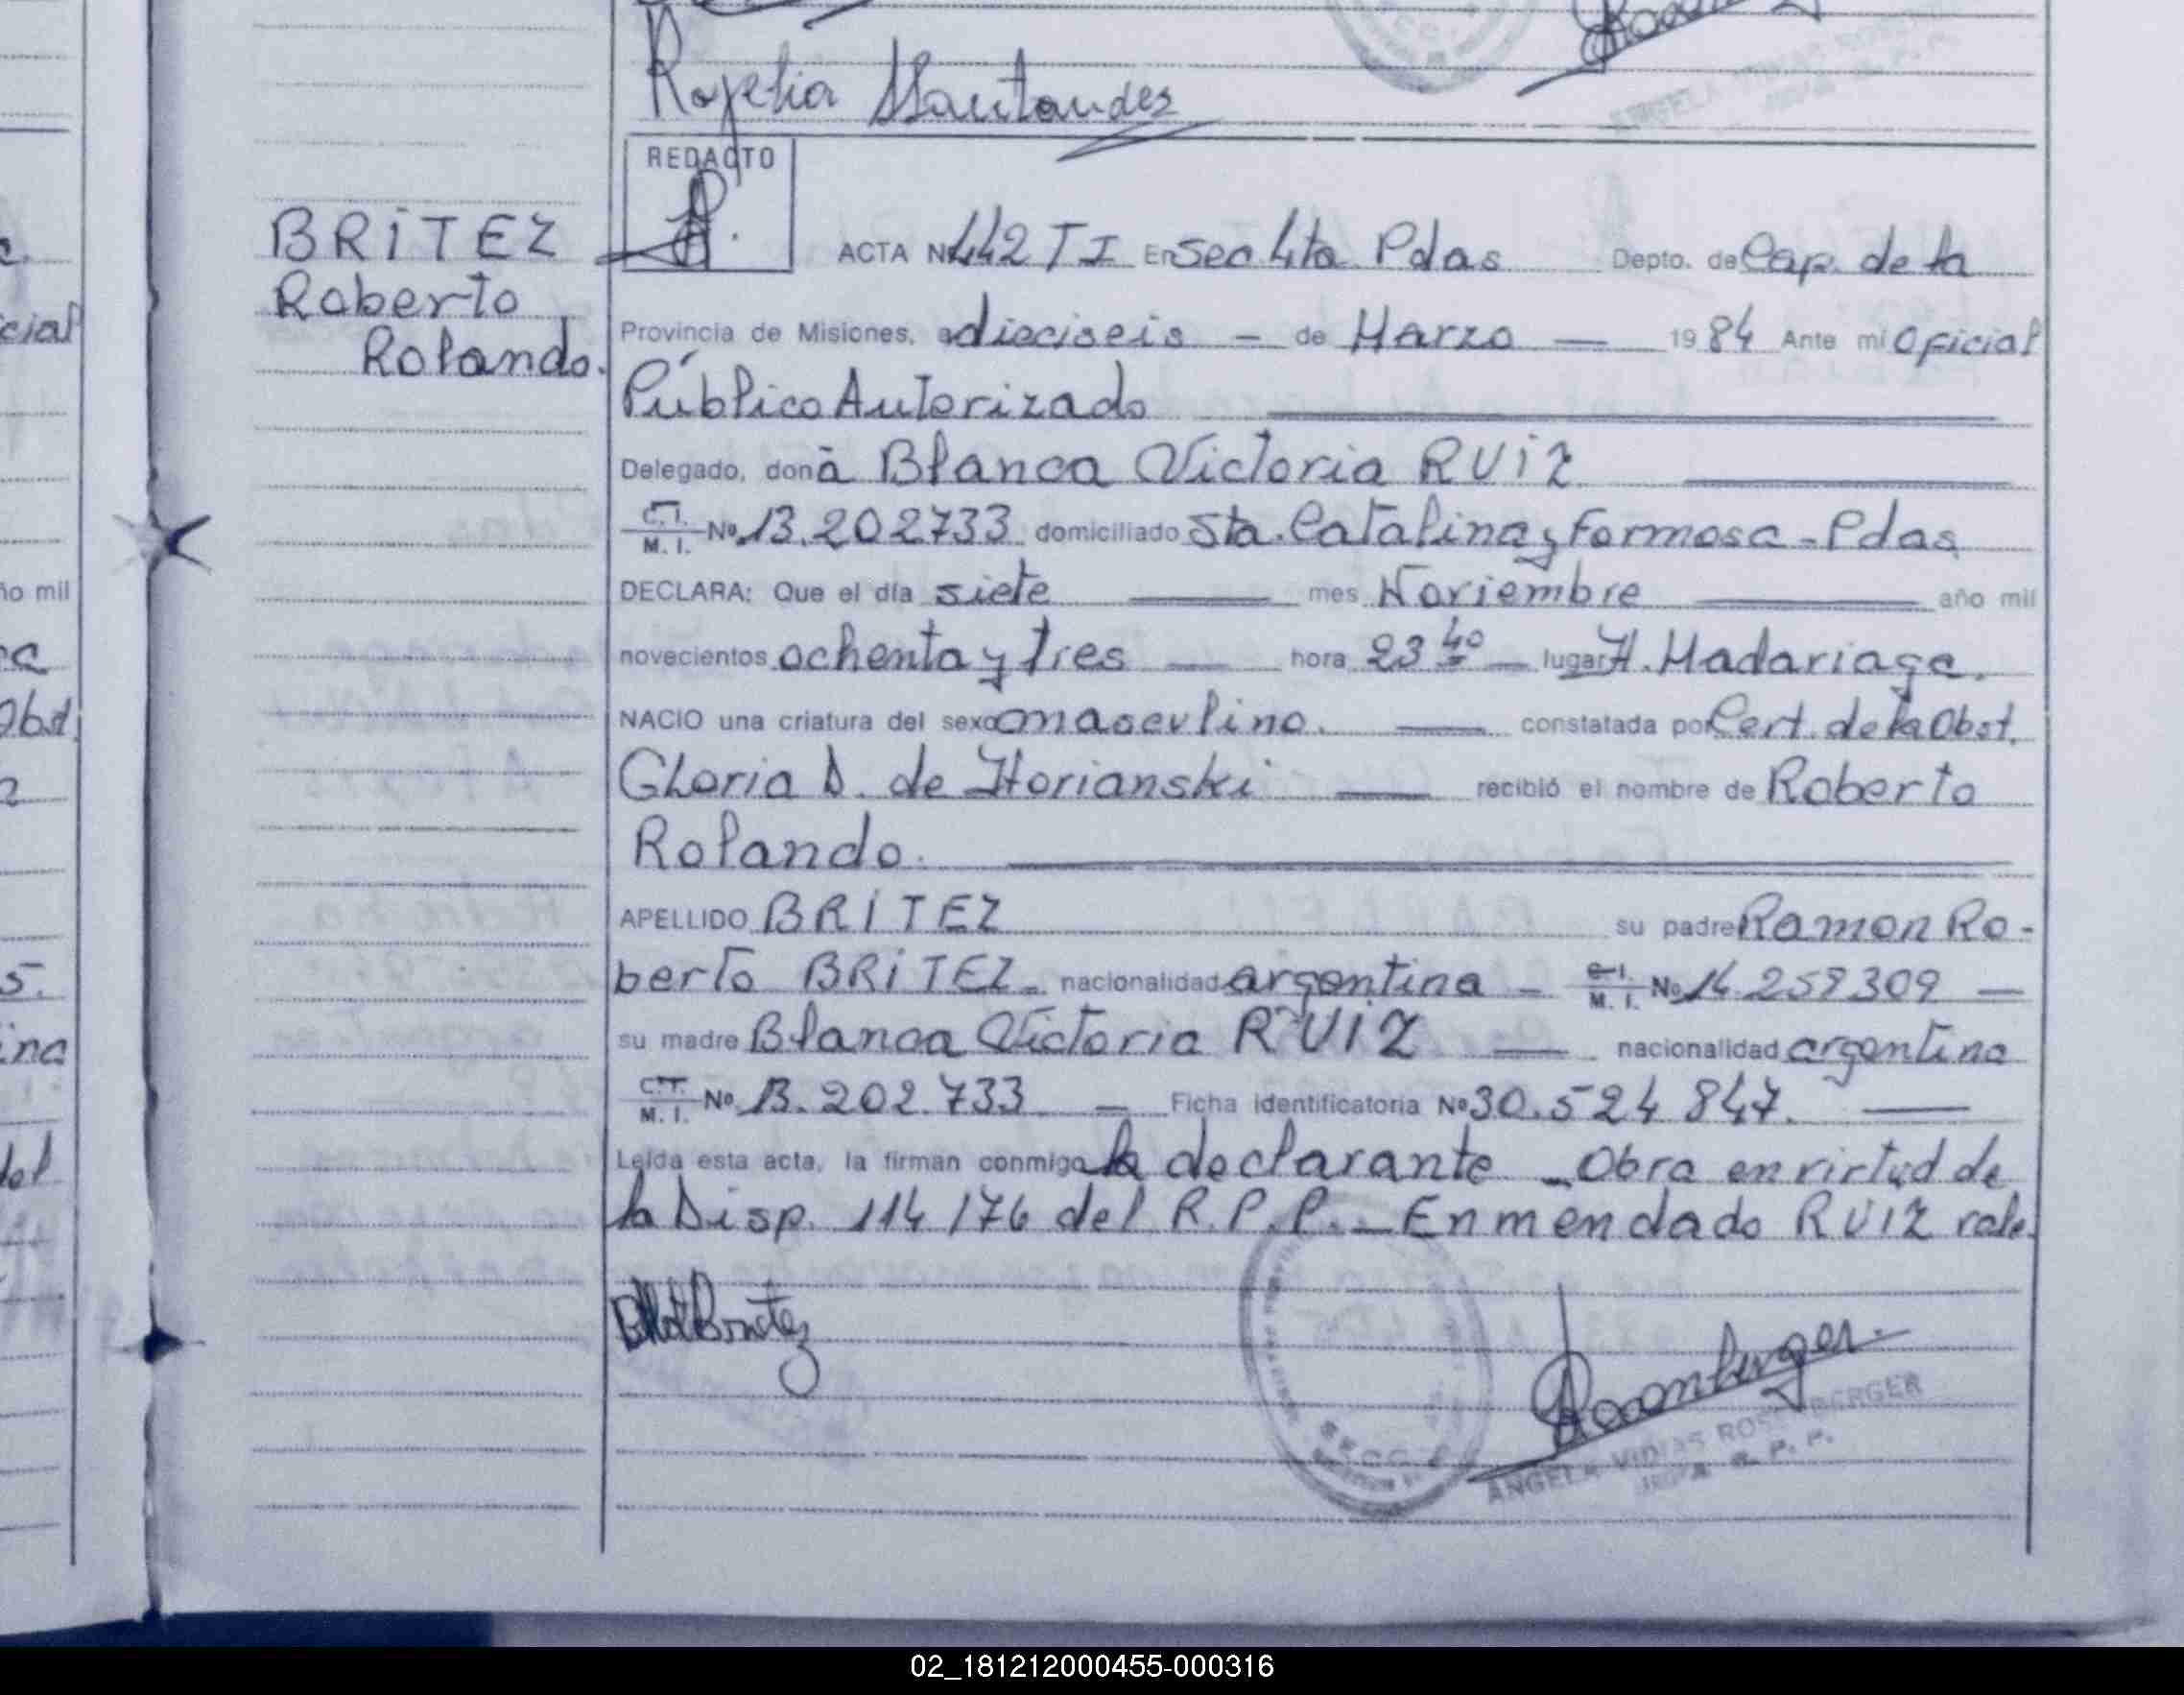 Rojelia Santander
REDACTO
BRITEZ
Roberto
Rolando.
ACTA Nº 442 T I En Sec 4ta Pdas Depto. de Cap. de la
Provincia de Misiones, a dieciseis - de Marzo — 1984 Ante mi Oficial
Público Autorizado
Delegado, donà Blanca Victoria RUIZ
C.I. M. I. Nº 13.202733 domiciliado Sta. Catalina y Formosa - Pdas
DECLARA: Que el día siete — mes Noviembre — año mil
novecientos ochenta y tres — hora 23 40 — lugar H. Madariaga.
NACIO una criatura del sexo masculino. — constatada por Cert. de la Obst.
Gloria D. de Horianski — recibió el nombre de Roberto
Rolando.
APELLIDO BRITEZ su padre Ramon Ro-
berto BRITEZ - nacionalidad argentina - C.I. M. I. Nº 14.259309 —
su madre Blanca Victoria RUIZ — nacionalidad argentina
C.I. M. I. Nº 13.202.733 - Ficha identificatoria Nº 30.524847. —
Leída esta acta, la firman conmigo la declarante - Obra en virtud de
la Disp. 114/76 del R.P.P. - Enmendado RUIZ vale.
ANGELA VIDIAS ROSENBERGER
JEFA R. P. P.
cial
ño mil
Obst.
ina
del
02_181212000455-000316